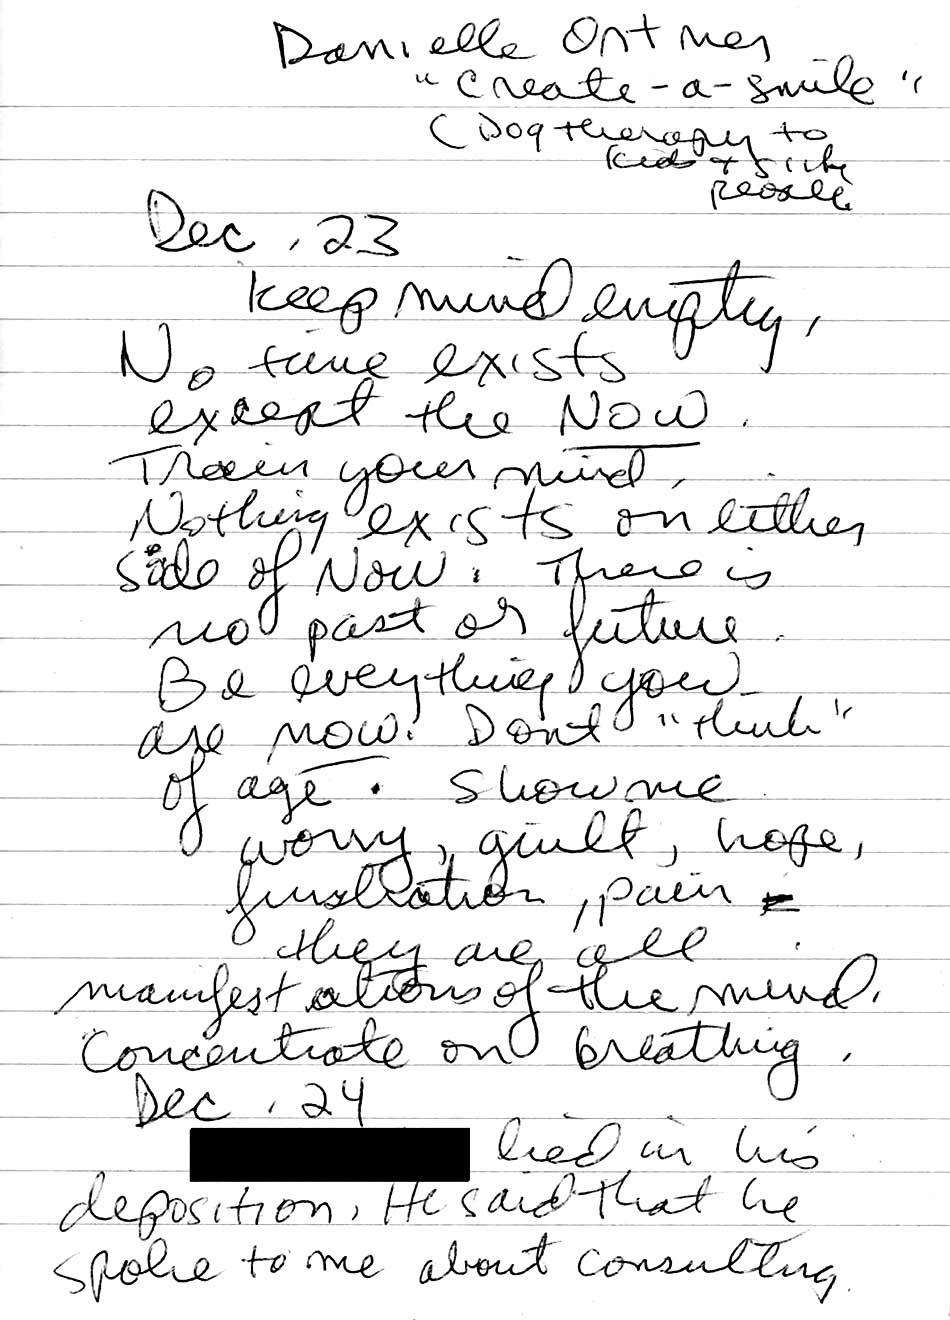 Danielle Ortner
"Create-a-smile"
(Dog therapy to
kids + sick
people
Dec. 23
Keep mind empty,
No time exists
except the Now.
Train your mind.
Nothing exists on either
side of Now. There is
no past or future.
Be everything you
are now. Dont "think"
of age. Show me
worry, guilt, hope,
frustration, pain =
they are all
manifestations of the mind.
Concentrate on breathing.
Dec. 24
lied in his
deposition. He said that he
spoke to me about consulting.